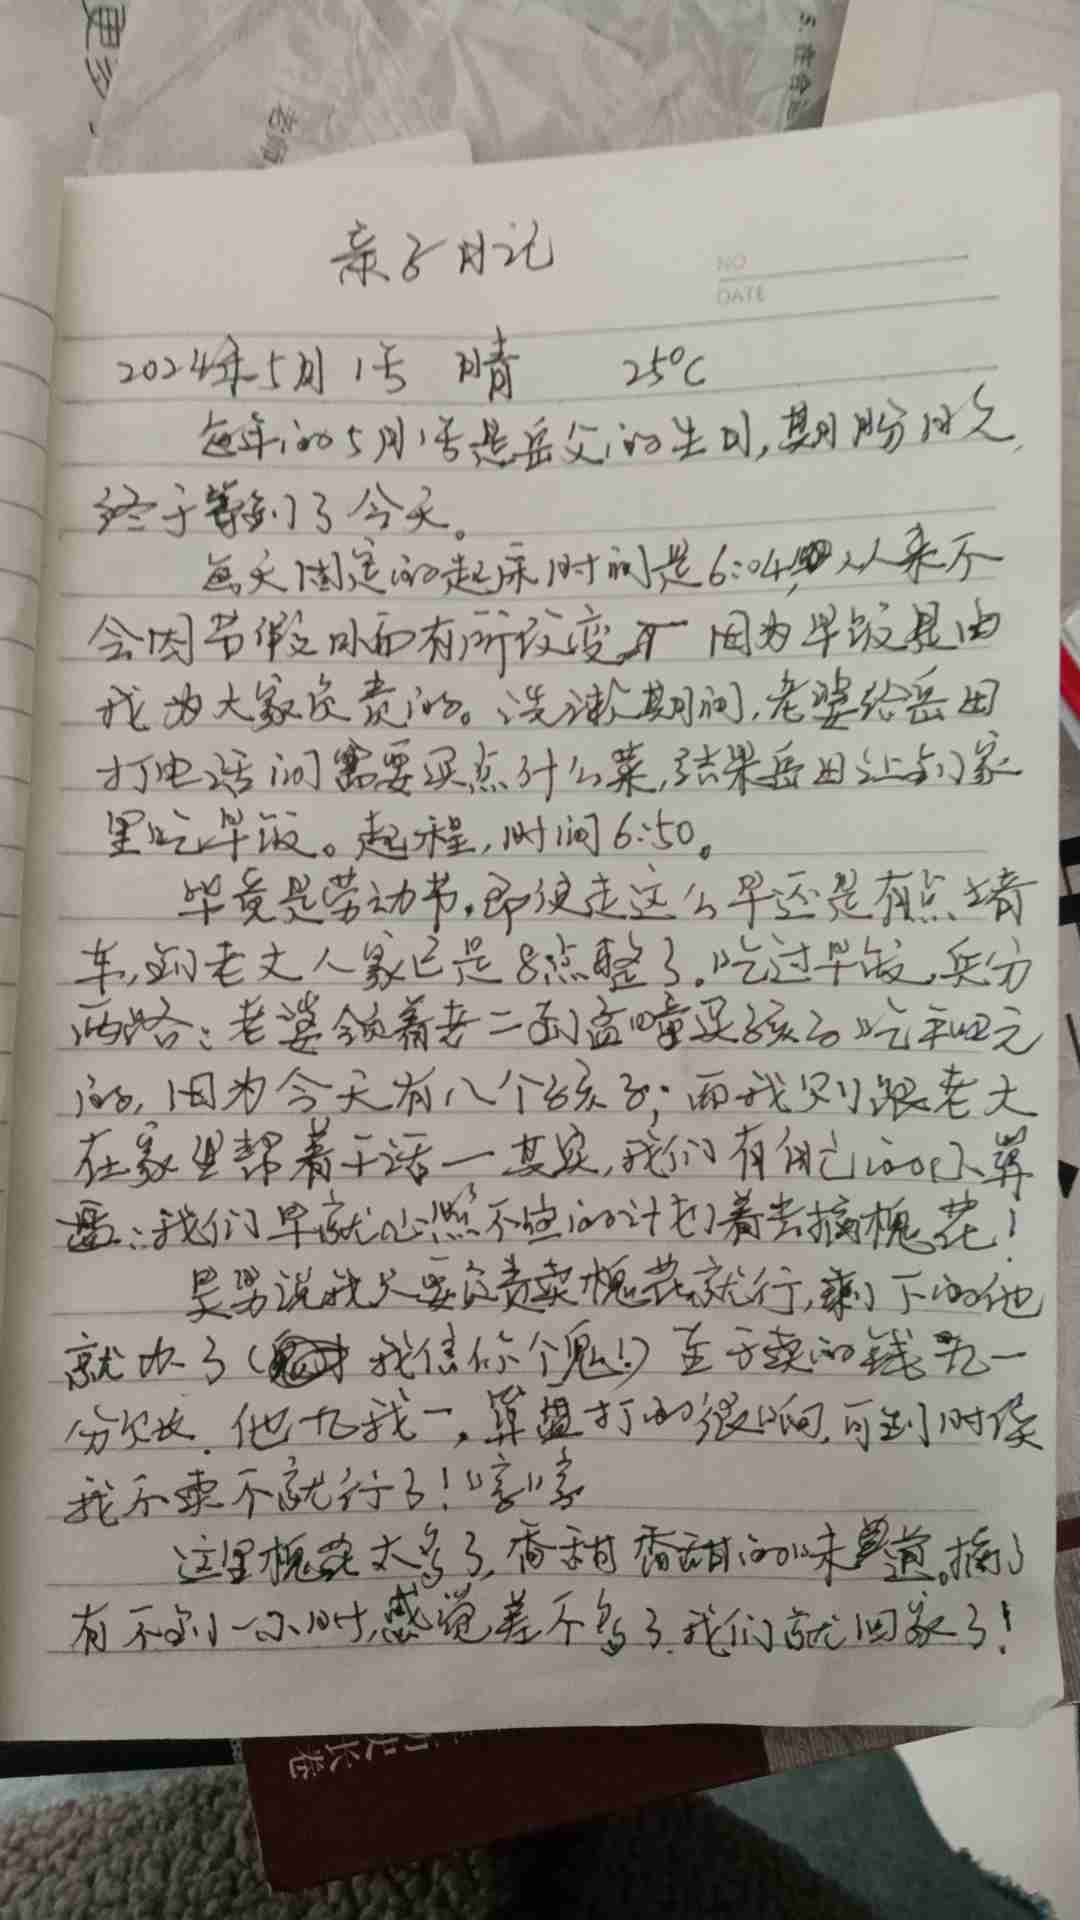 更多
老师
亲子日记
NO
DATE
2024年5月1号 晴 25℃
每年的5月1号是岳父的生日,期盼已久,
终于等到了今天。
每天固定的起床时间是6:04,从来不
会因节假日而有所改变 因为早饭是由
我为大家负责的。洗漱期间,老婆给岳母
打电话问需要买点什么菜,结果岳母让到家
里吃早饭。起程,时间6:50。
毕竟是劳动节,即使走这么早还是有点堵
车,到老丈人家已是8点整了。吃过早饭,兵分
两路:老婆领着老二到孟疃买孩子吃和喝
的,因为今天有八个孩子;而我则跟老大
在家里帮着干活一其实,我们有自己的小算
盘:我们早就心照不宣的计划着去摘槐花!
昊男说我只要负责卖槐花就行,剩下的他
就办了(我信你个鬼!)至于卖的钱九一
分成,他九我一,算盘打的很响,可到时候
我不卖不就行了!哈哈
这里槐花太多了,香甜香甜的味道。摘了
有不到一小时,感觉差不多了,我们就回家了!
历史长卷